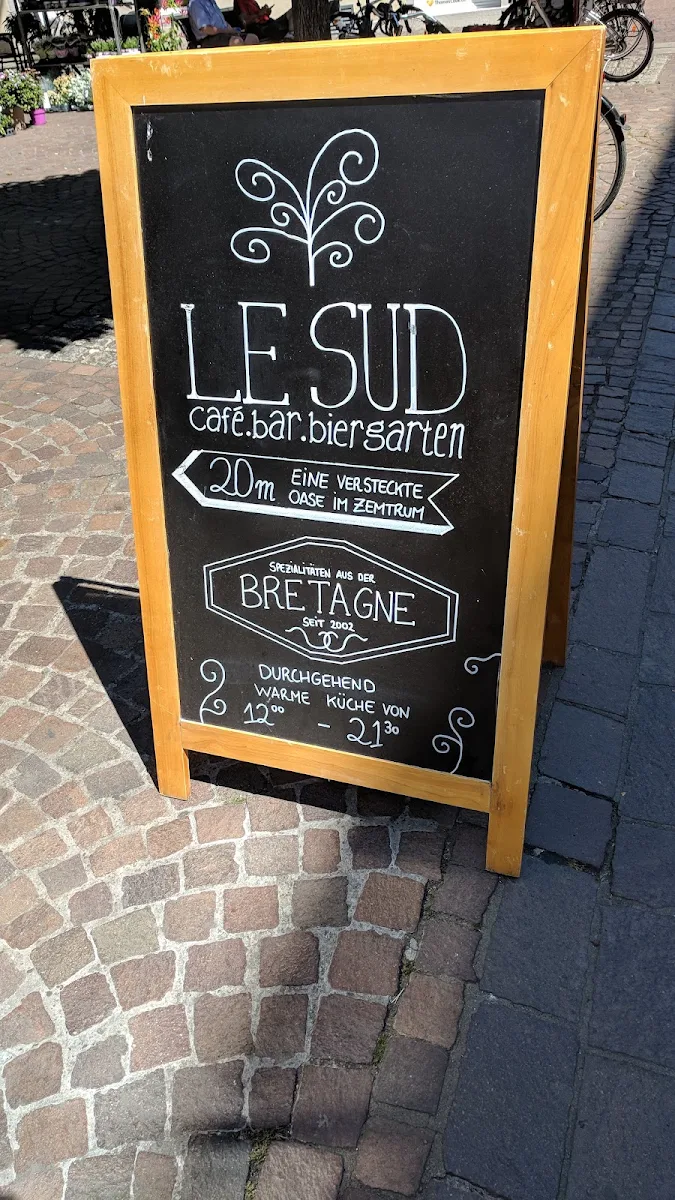 LE SUD
café.bar.biergarten
20m EINE VERSTECKTE
OASE IM ZEMTRUM
SPEZIALITÄTEN AUS DER
BRETAGNE
SEIT 2002
DURCHGEHEND
WARME KÜCHE VON
12⁰⁰ – 21³⁰